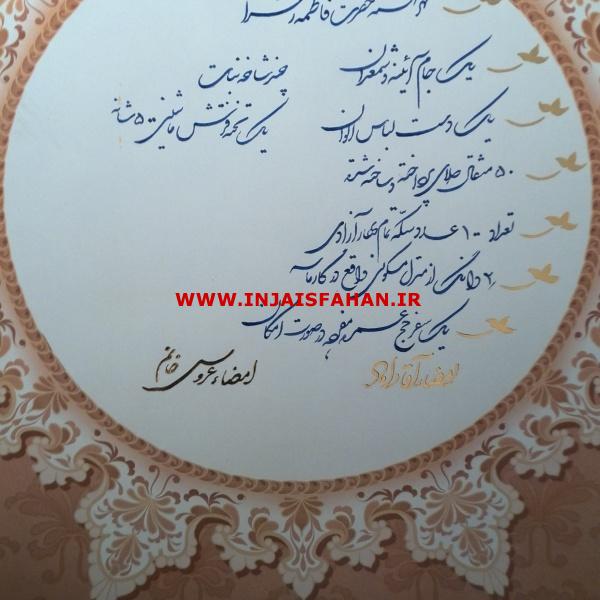 مهرالسنه حضرت فاطمه زهرا
یک جام آئینه و شمعدان چند شاخه نبات
یک دست لباس الوان یک تخته فرش ماشینی ۵ شانه
۵۰ مثقال طلای پرداخته و ساخته شده
تعداد ۱۰ عدد سکه تمام بهار آزادی
۲ دانگ از منزل مسکونی واقع در گارماسه
WWW.INJAISFAHAN.IR
یک سفر حج عمره مفرده در صورت امکان
امضاء آقا داماد امضاء عروس خانم